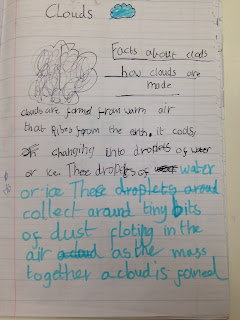 Clouds
Facts about clods
how clouds are
made
clouds are formed from warm air
that Rises from the earth. it cools
changing into droplets of water
or ice These droplets of water
or ice These droplets around
collect around tiny bits
of dust floting in the
air a cloud as the mass
together a cloud is formed